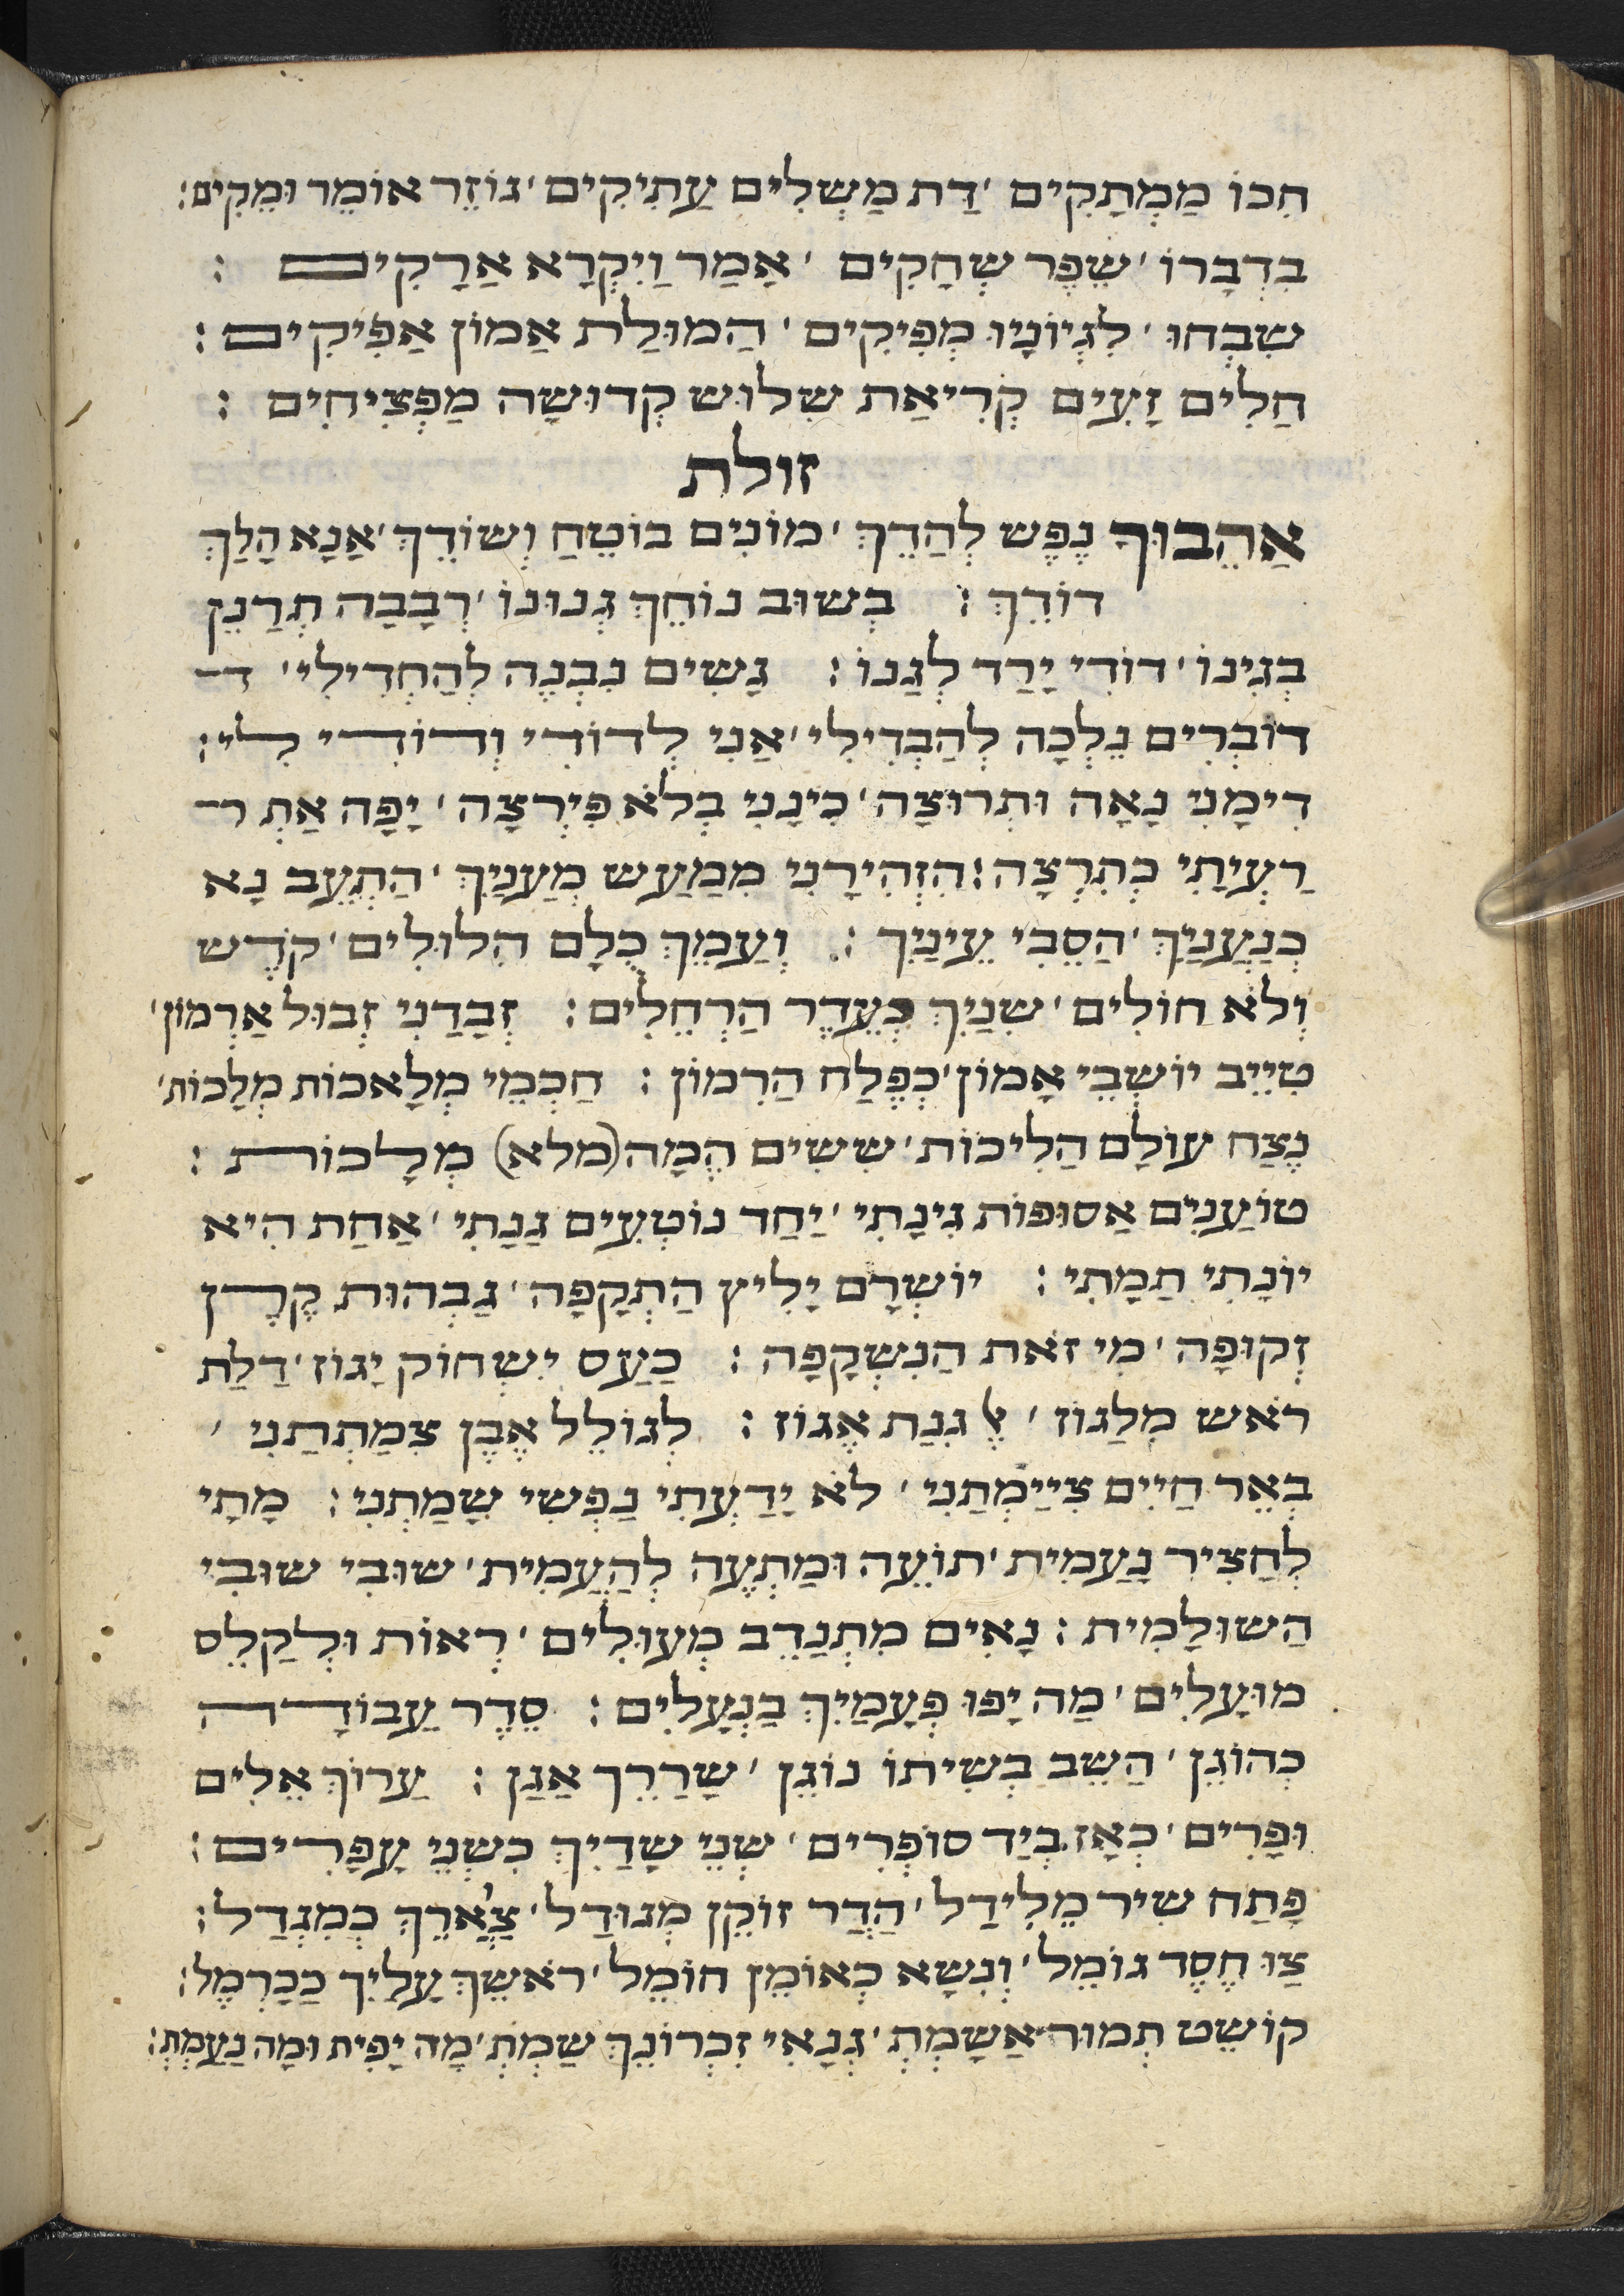 חִכּוֹ מַמְתָקִים ׳ דַת מַשְׁלִים עַתִיקִים ׳ גוֹזֵר אוֹמֵר וּמֵקִים׃
בִדְבָרוֹ ׳ שִׁפֵּר שְׁחָקִים ׳ אָמַר וַיִקְרָא אַרָקִים ׃
שִבְחוּ ׳ לִגְיוֹנָיו מְפִיקִים ׳ הַמוּלַת אַמוֹן אַפִיקִים ׃
חַלִים זָעִים קְרִיאַת שִלוּש קְדוּשָה מַפְצִיחִים ׃
זולת
אַהֵבוּךָ נֶפֶש לְהַדֵךְ ׳ מוֹנִים בוֹטֵחַ וְשוֹדֵךְ ׳ אַנָא הָלַךְ
דוֹדֵךְ ׃ בְשוּב נוֹחֵךְ גְנוּנוֹ ׳ רְבָבָה תְרַנֵן
בְגִינוֹ ׳ דוֹדִי יָרַד לְגַנוֹ ׃ גָשִים נִבְנֶה לְהַחְדִילִי ׳ ד
דוֹבְרִים נֵלְכָה לְהַבְדִילִי ׳ אַנִי לְדוֹדִי וְדוֹדִי לִי ׃
דִימָנִי נָאָה וּתְרוּצָה ׳ כִינָנִי בְלֹא פִירְצָה ׳ יָפָה אַתְ ר
רַעְיָתִי כְתִרְצָה ׃ הִזְהִירָנִי מִמַעַש מְעַנַיִךְ ׳ הַתְעֵב נָא
כְנַעֲנַיִךְ ׳ הַסֵבִי עֵינַיִךְ ׃ וְעַמֵךְ כֻלָם הִלוּלִים ׳ קֹדֶש
וְלֹא חוֹלִים ׳ שִנַיִךְ כְעֵדֶר הַרְחֵלִים ׃ זְבָדַנִי זְבוּל אַרְמוֹן ׳
טִיֵיב יוֹשְבֵי אָמוֹן ׳ כְפֶלַח הַרִמוֹן ׃ חַכְמֵי מְלָאכוֹת מְלָכוֹת ׳
נֶצַח עוֹלָם הַלִיכוֹת ׳ שִשִים הֵמָה (מלא) מְלָכוֹת ׃
טוֹעַנִים אַסוּפּוֹת גִינָתִי ׳ יַחַד נוֹטְעִים גַנָתִי ׳ אַחַת הִיא
יוֹנָתִי תַמָתִי ׃ יוֹשְרָם יָלִיץ הַתְקָפָה ׳ גַבְהוּת קֶרֶן
זְקוּפָה ׳ מִי זֹאת הַנִשְקָפָה ׃ כַעַס יִשְחוֹק יָגוֹז ׳ דַלַת
רֹאש מִלַגוֹז ׳ אֶל גִנַת אֶגוֹז ׃ לְגוֹלֵל אֶבֶן צִמַתְתַנִי ׳
בְאֵר חַיִים צִייַמְתַנִי ׳ לֹא יָדַעְתִי נַפְשִי שָמַתְנִי ׃ מָתָי
לְחַצִיר נָעַמִית ׳ תוֹעֵה וּמַתְעֶה לְהַעֲמִית ׳ שוּבִי שוּבִי
הַשוּלַמִית ׃ נָאִים מִתְנַדֵב מְעוּלִים ׳ רְאוֹת וּלְקַלֵס
מוּעָלִים ׳ מַה יָפוּ פְעָמַיִךְ בַנְעָלִים ׃ סֵדֶר עַבוֹדָה
כְהוֹגֵן ׳ הַשֵב בְשִיתוֹ נוֹגֵן ׳ שָרַרֵךְ אַגַן ׃ עַרוֹךְ אֵלִים
וּפָרִים ׳ כְאָז בְיַד סוֹפְרִים ׳ שְנֵי שָדַיִךְ כִשְנֵי עָפָרִים ׃
פָתַח שִיר מֵלִידַל ׳ הַדַר זוֹקֵן מְגוּדַל ׳ צַוָארֵךְ כְמִגְדַל ׃
צַוּ חֶסֶד גוֹמֵל ׳ וְנִשָא כְאוֹמֵן חוֹמֵל ׳ רֹאשֵךְ עָלַיִךְ כַכַרְמֶל ׃
קוֹשֵט תְמוּר אַשָמְתְ ׳ גְנָאִי זִכְרוֹנֵךְ שַמְתְ ׳ מַה יָפִית וּמָה נַעַמְתְ ׃